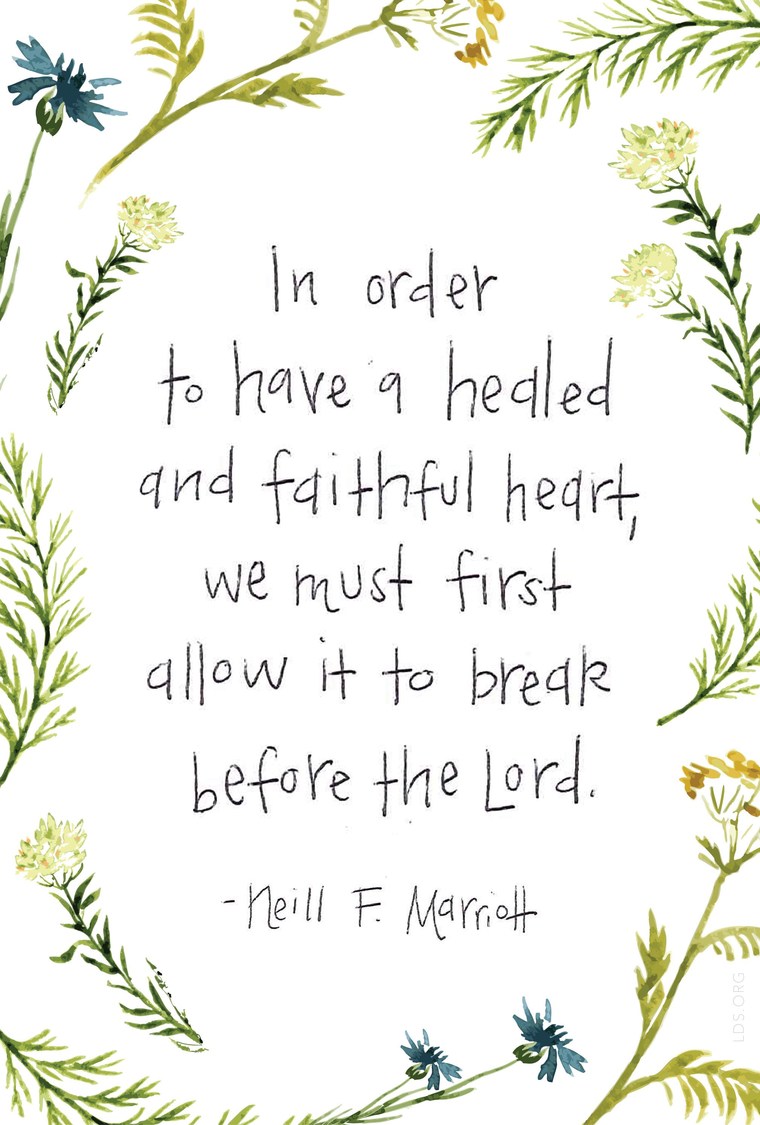 In order
to have a healed
and faithful heart,
we must first
allow it to break
before the Lord.
-Neill F. Marriott
LDS.ORG